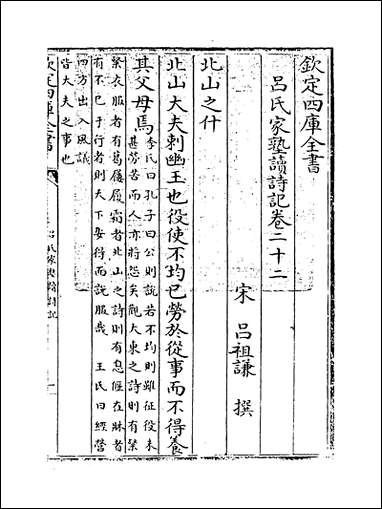 欽定四庫全書
呂氏家塾讀詩記卷二十二
宋 呂祖謙 撰
北山之什
北山大夫刺幽王也役使不均已勞於從事而不得養
其父母焉
李氏曰孔子曰公則說若不均則雖征役未
甚勞苦而人亦將怨矣觀大東之詩則有粲
粲衣服者有葛屨履霜者北山之詩則有息偃在牀者
有不已于行者則天下安得而說服哉 王氏曰經營
四方出入風議
皆大夫之事也
欽定四庫全書
呂氏家塾讀詩記
一